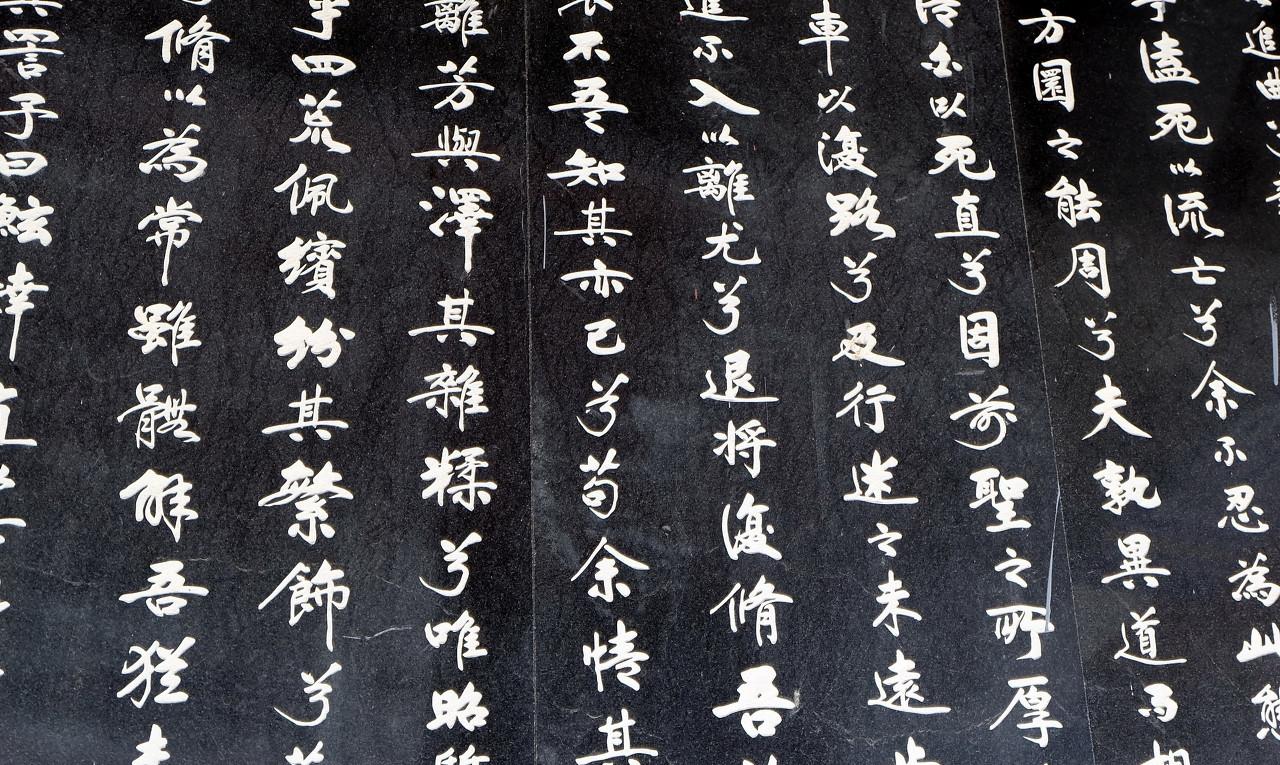 追曲
溘死以流亡兮余不忍為此態
方圜之能周兮夫孰異道而相
以死直兮固前聖之所厚
車以復路兮及行迷之未遠
進不入以離尤兮退將復脩吾
不吾知其亦已兮苟余情其
離芳與澤其雜糅兮唯昭質
乎四荒佩繽紛其繁飾兮芳
脩以為常雖體解吾猶未
詈予曰鮌婞直